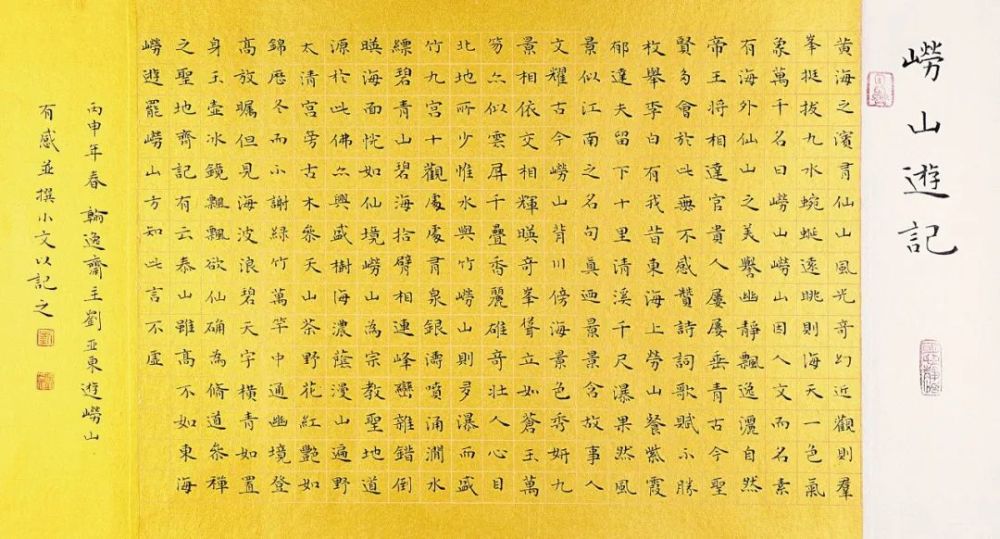 嶗山遊記
黃海之濱有仙山風光奇幻近觀則羣
峯挺拔九水蜿蜒遠眺則海天一色氣
象萬千名曰嶗山嶗山因人文而名素
有海外仙山之美譽幽靜飄逸灑自然
帝王將相達官貴人屢屢垂青古今聖
賢多會於此無不感贊詩詞歌賦不勝
枚舉李白有我昔東海上勞山餐紫霞
郁達夫留下十里清溪千尺瀑果然風
景似江南之名句真迺景景含故事人
文耀古今嶗山背川傍海景色秀妍九
景相依交相輝暎奇峯聳立如蒼玉萬
笏亦似雲屏千疊香麗雄奇壯人心目
北地所少惟水與竹嶗山則多瀑而盛
竹九宮十觀處處有泉銀濤噴涌澗水
縹碧青山碧海拾臂相連峰巒雜錯倒
暎海面恍如仙境嶗山為宗教聖地道
源於此佛亦興盛樹海濃蔭漫山遍野
太清宮旁古木參天山茶野花紅艷如
錦歷冬而不謝綠竹萬竿中通幽境登
高放矚但見海波浪碧天宇橫青如置
身玉壺冰鏡飄飄欲仙確為脩道參禪
之聖地齊記有云泰山雖高不如東海
嶗遊罷嶗山方知此言不虛
丙申年春翰逸齋主劉亞東遊嶗山
有感並撰小文以記之